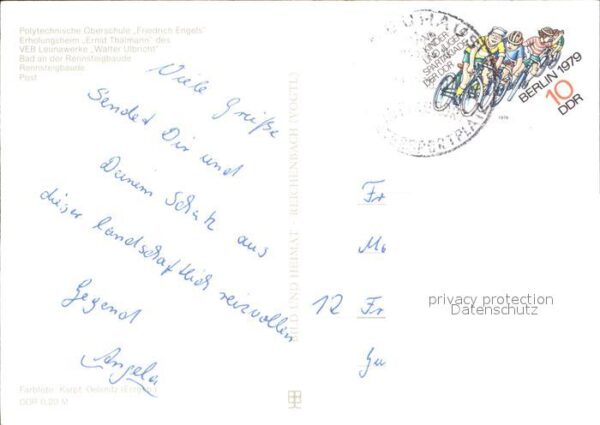 Polytechnische Oberschule „Friedrich Engels"
Erholungsheim „Ernst Thälmann" des
VEB Leunawerke „Walter Ulbricht"
Bad an der Rennsteigbaude
Rennsteigbaude
Post
Viele Grüße
Sendet Dir und
Deinem Schatz aus
dieser landschaftlich reizvollen
Gegend
Angela
Farbfoto: Karpf, Oelsnitz (Erzgeb.)
DDR 0,20 M
BILD UND HEIMAT REICHENBACH (VOGTL)
KINDER
UND
SPARTAKIADE
DER DDR
SPORTPLATZ
BERLIN 1979
10
DDR
1979
Fr
Mo
12 Fr
Gu
privacy protection
Datenschutz